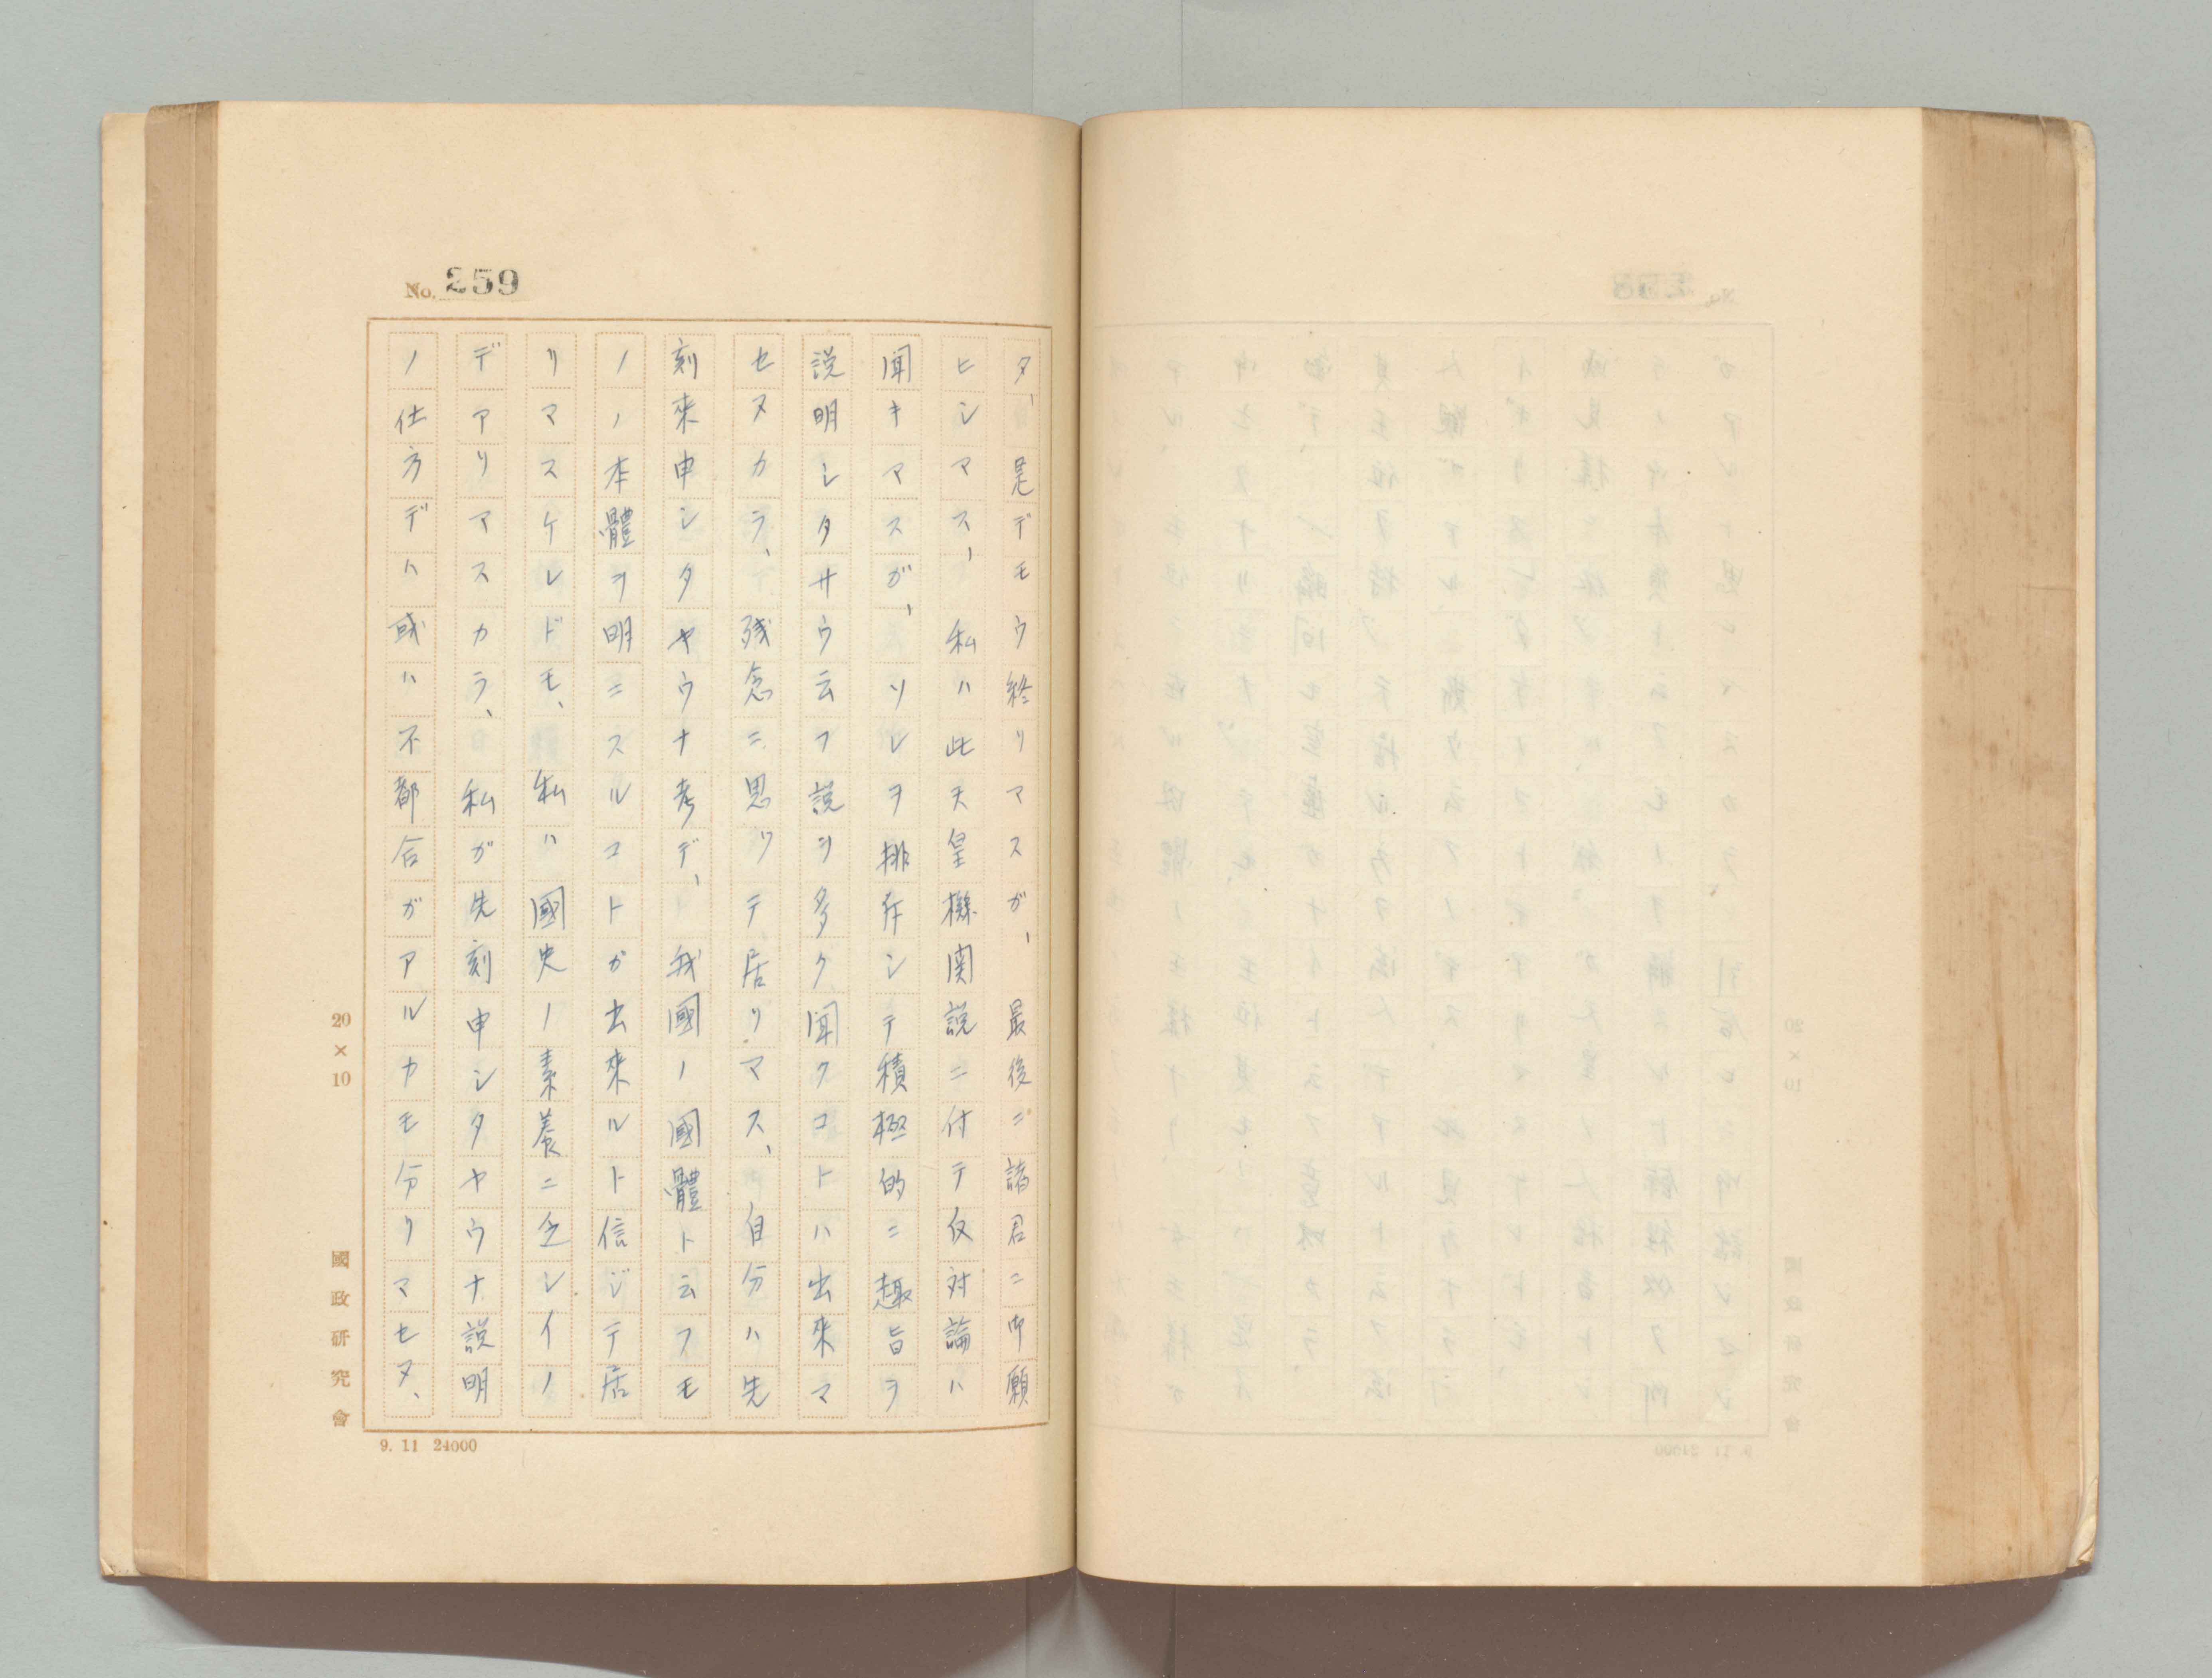 No. 259
タ、是デモウ終リマスガ、最後ニ諸君ニ御願
ヒシマス、私ハ此天皇機関説ニ付テ反対論ハ
聞キマスガ、ソレヲ排斥シテ積極的ニ趣旨ヲ
説明シタサウ云フ説ヲ多ク聞クコトハ出来マ
セヌカラ、残念ニ思ツテ居リマス、自分ハ先
刻來申シタヤウナ考デ、我國ノ國體ト云フモ
ノノ本體ヲ明ニスルコトガ出來ルト信ジテ居
リマスケレドモ、私ハ國史ノ素養ニ乏シイノ
デアリマスカラ、私ガ先刻申シタヤウナ説明
ノ仕方デハ或ハ不都合ガアルカモ分リマセヌ、
20×10
國政研究會
9. 11 24000